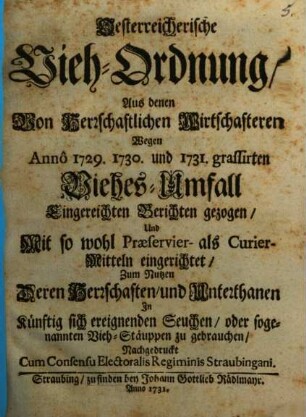 5.
Oesterreicherische
Vieh-Ordnung/
Aus denen
Von Herrschafftlichen Wirtschafteren
Wegen
Annô 1729. 1730. und 1731. grassirten
Viehes-Umfall
Eingereichten Berichten gezogen/
Und
Mit so wohl Præservier- als Curier-
Mitteln eingerichtet/
Zum Nutzen
Deren Herrschaften/und Unterthanen
In
Künftig sich ereignenden Seuchen/ oder soge-
nannten Vieh-Stäuppen zu gebrauchen/
Nachgedruckt
Cum Consensu Electoralis Regiminis Straubingani.
Straubing/ zu finden bey Johann Gottlieb Rädlmayr.
Anno 1731.